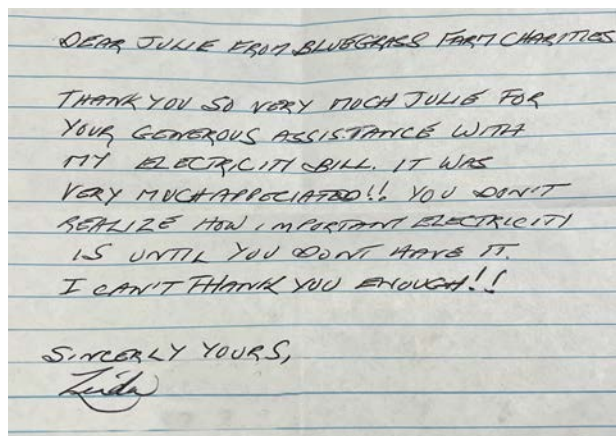 DEAR JULIE FROM BLUEGRASS FARM CHARITIES
THANK YOU SO VERY MUCH JULIE FOR
YOUR GENEROUS ASSISTANCE WITH
MY ELECTRICITY BILL. IT WAS
VERY MUCH APPECIATED!! YOU DON'T
REALIZE HOW IMPORTANT ELECTRICITY
IS UNTIL YOU DONT HAVE IT.
I CAN'T THANK YOU ENOUGH!!
SINCERLY YOURS,
Linda